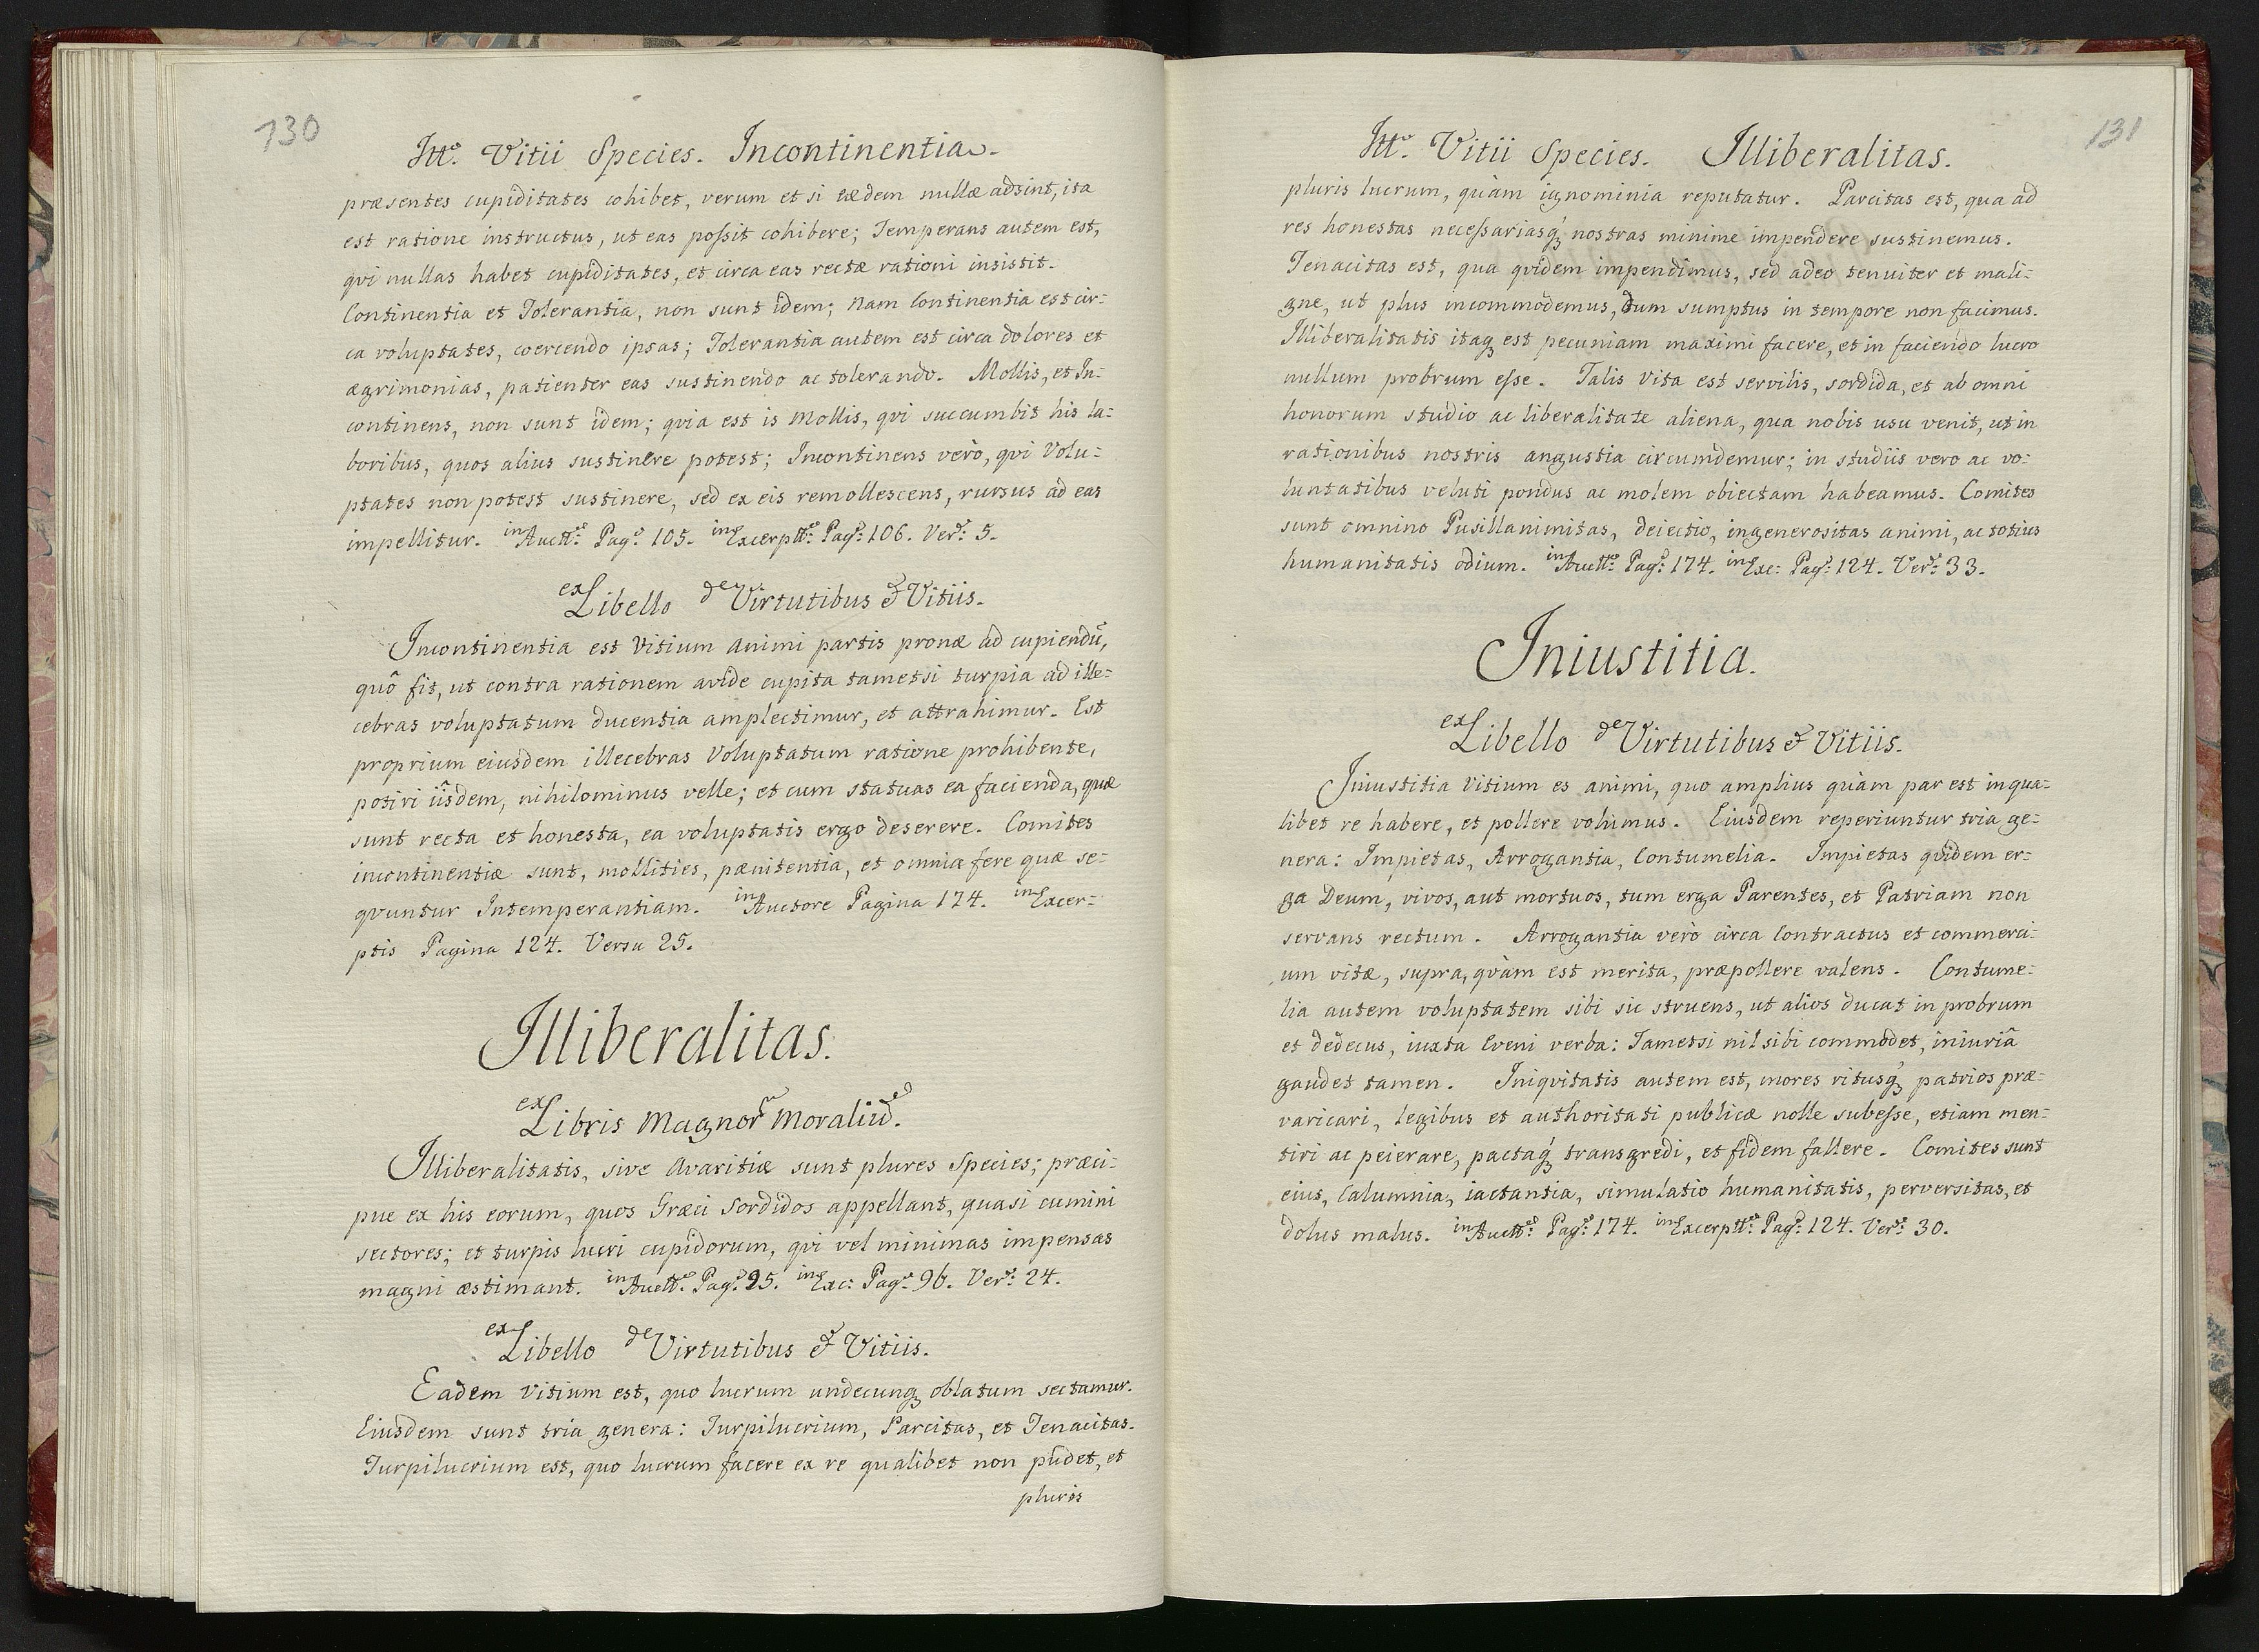 130
Ittº. Vitii Species. Incontinentia.
præsentes cupiditates cohibet, verum et si eædem nullæ adsint, ita
est ratione instructus, ut eas poſsit cohibere; Temperans autem est,
qvi nullas habet cupiditates, et circa eas rectæ rationi insistit.
Continentia et Tolerantia, non sunt idem; Nam Continentia est cir=
ca voluptates, coercendo ipsas; Tolerantia autem est circa dolores et
ægrimonias, patienter eas sustinendo ac tolerando. Mollis, et In=
continens, non sunt idem; qvia est is Mollis, qvi succumbit his la=
boribus, quos alius sustinere potest; Incontinens verò, qvi Volu=
ptates non potest sustinere, sed ex eis remollescens, rursus ad eas
impellitur. in Auctt: Pag: 105. in Excerptt: Pag: 106. Ver: 5.
ex Libello de Virtutibus & Vitiis.
Incontinentia est Vitium animi partis pronæ ad cupiendū,
quô fit, ut contra rationem avide cupita tametsi turpia ad ille=
cebras voluptatum ducentia amplectimur, et attrahimur. Est
proprium eiusdem illecebras Voluptatum ratione prohibente,
potiri iîsdem, nihilominus velle; et cum statuas ea facienda, quæ
sunt recta et honesta, ea voluptatis ergo deserere. Comites
incontinentiæ sunt, mollities, pænitentia, et omnia fere quæ se=
qvuntur Intemperantiam. in Auctore Pagina 174. in Excer=
ptis Pagina 124. Versu 25.
Illiberalitas.
ex Libris Magnor Moraliū.
Illiberalitatis, sive Avaritiæ sunt plures Species; præci=
pue ex his eorum, quos Græci Sordidos appellant, quasi cumini
sectores; et turpis lucri cupidorum, qvi vel minimas impensas
magni æstimant. in Auctt: Pag: 25. in Exc: Pag: 96. Ver: 24.
ex Libello de Virtutibus & Vitiis.
Eadem Vitium est, quo lucrum undecunqꝫ oblatum sectamur.
Eiusdem sunt tria genera: Turpilucrium, Parcitas, et Tenacitas.
Turpilucrium est, quo lucrum facere ex re qualibet non pudet, et
pluris
131
Ittº. Vitii Species. Illiberalitas.
pluris lucrum, quàm ignominia reputatur. Parcitas est, qua ad
res honestas neceſsariasqꝫ nostras minime impendere sustinemus.
Tenacitas est, qua qvidem impendimus, sed adeo tenuiter et mali=
gne, ut plus incommodemus, dum sumptus in tempore non facimus.
Illiberalitatis itaqꝫ est pecuniam maximi facere, et in faciendo lucro
nullum probrum eſse. Talis Vita est servilis, sordida, et ab omni
honorum studio ac liberalitate aliena, qua nobis usu venit, ut in
rationibus nostris angustia circumdemur; in studiis vero ac vo=
luntatibus veluti pondus ac molem obiectam habeamus. Comites
sunt omnino Pusillanimitas, deiectio, ingenerositas animi, ac totius
humanitatis odium. in Auctt: Pag: 174. in Exc: Pag: 124. Ver: 33.
Iniustitia.
ex Libello de Virtutibus & Vitiis.
Iniustitia Vitium es animi, quo amplius quàm par est in qua=
libet re habere, et pollere volumus. Eiusdem reperiuntur tria ge=
nera: Impietas, Arrogantia, Contumelia. Impietas qvidem er=
ga Deum, vivos, aut mortuos, tum erga Parentes, et Patriam non
servans rectum. Arrogantia verò circa Contractus et commerci=
um vitæ, supra, qvàm est merita, præpollere valens. Contume=
lia autem voluptatem sibi sic struens, ut alios ducat in probrum
et dedecus, iuxta Eveni verba: Tametsi nil sibi commodet, iniuriâ
gaudet tamen. Iniqvitatis autem est, mores ritusqꝫ patrios præ=
varicari, legibus et authoritati publicæ nolle subeſse, etiam men=
tiri ac peierare, pactaqꝫ transgredi, et fidem fallere. Comites sunt
eius, Calumnia, iactantia, simulatio humanitatis, perversitas, et
dolus malus. in Auctt: Pag: 174. in Excerptt: Pag: 124. Ver: 30.